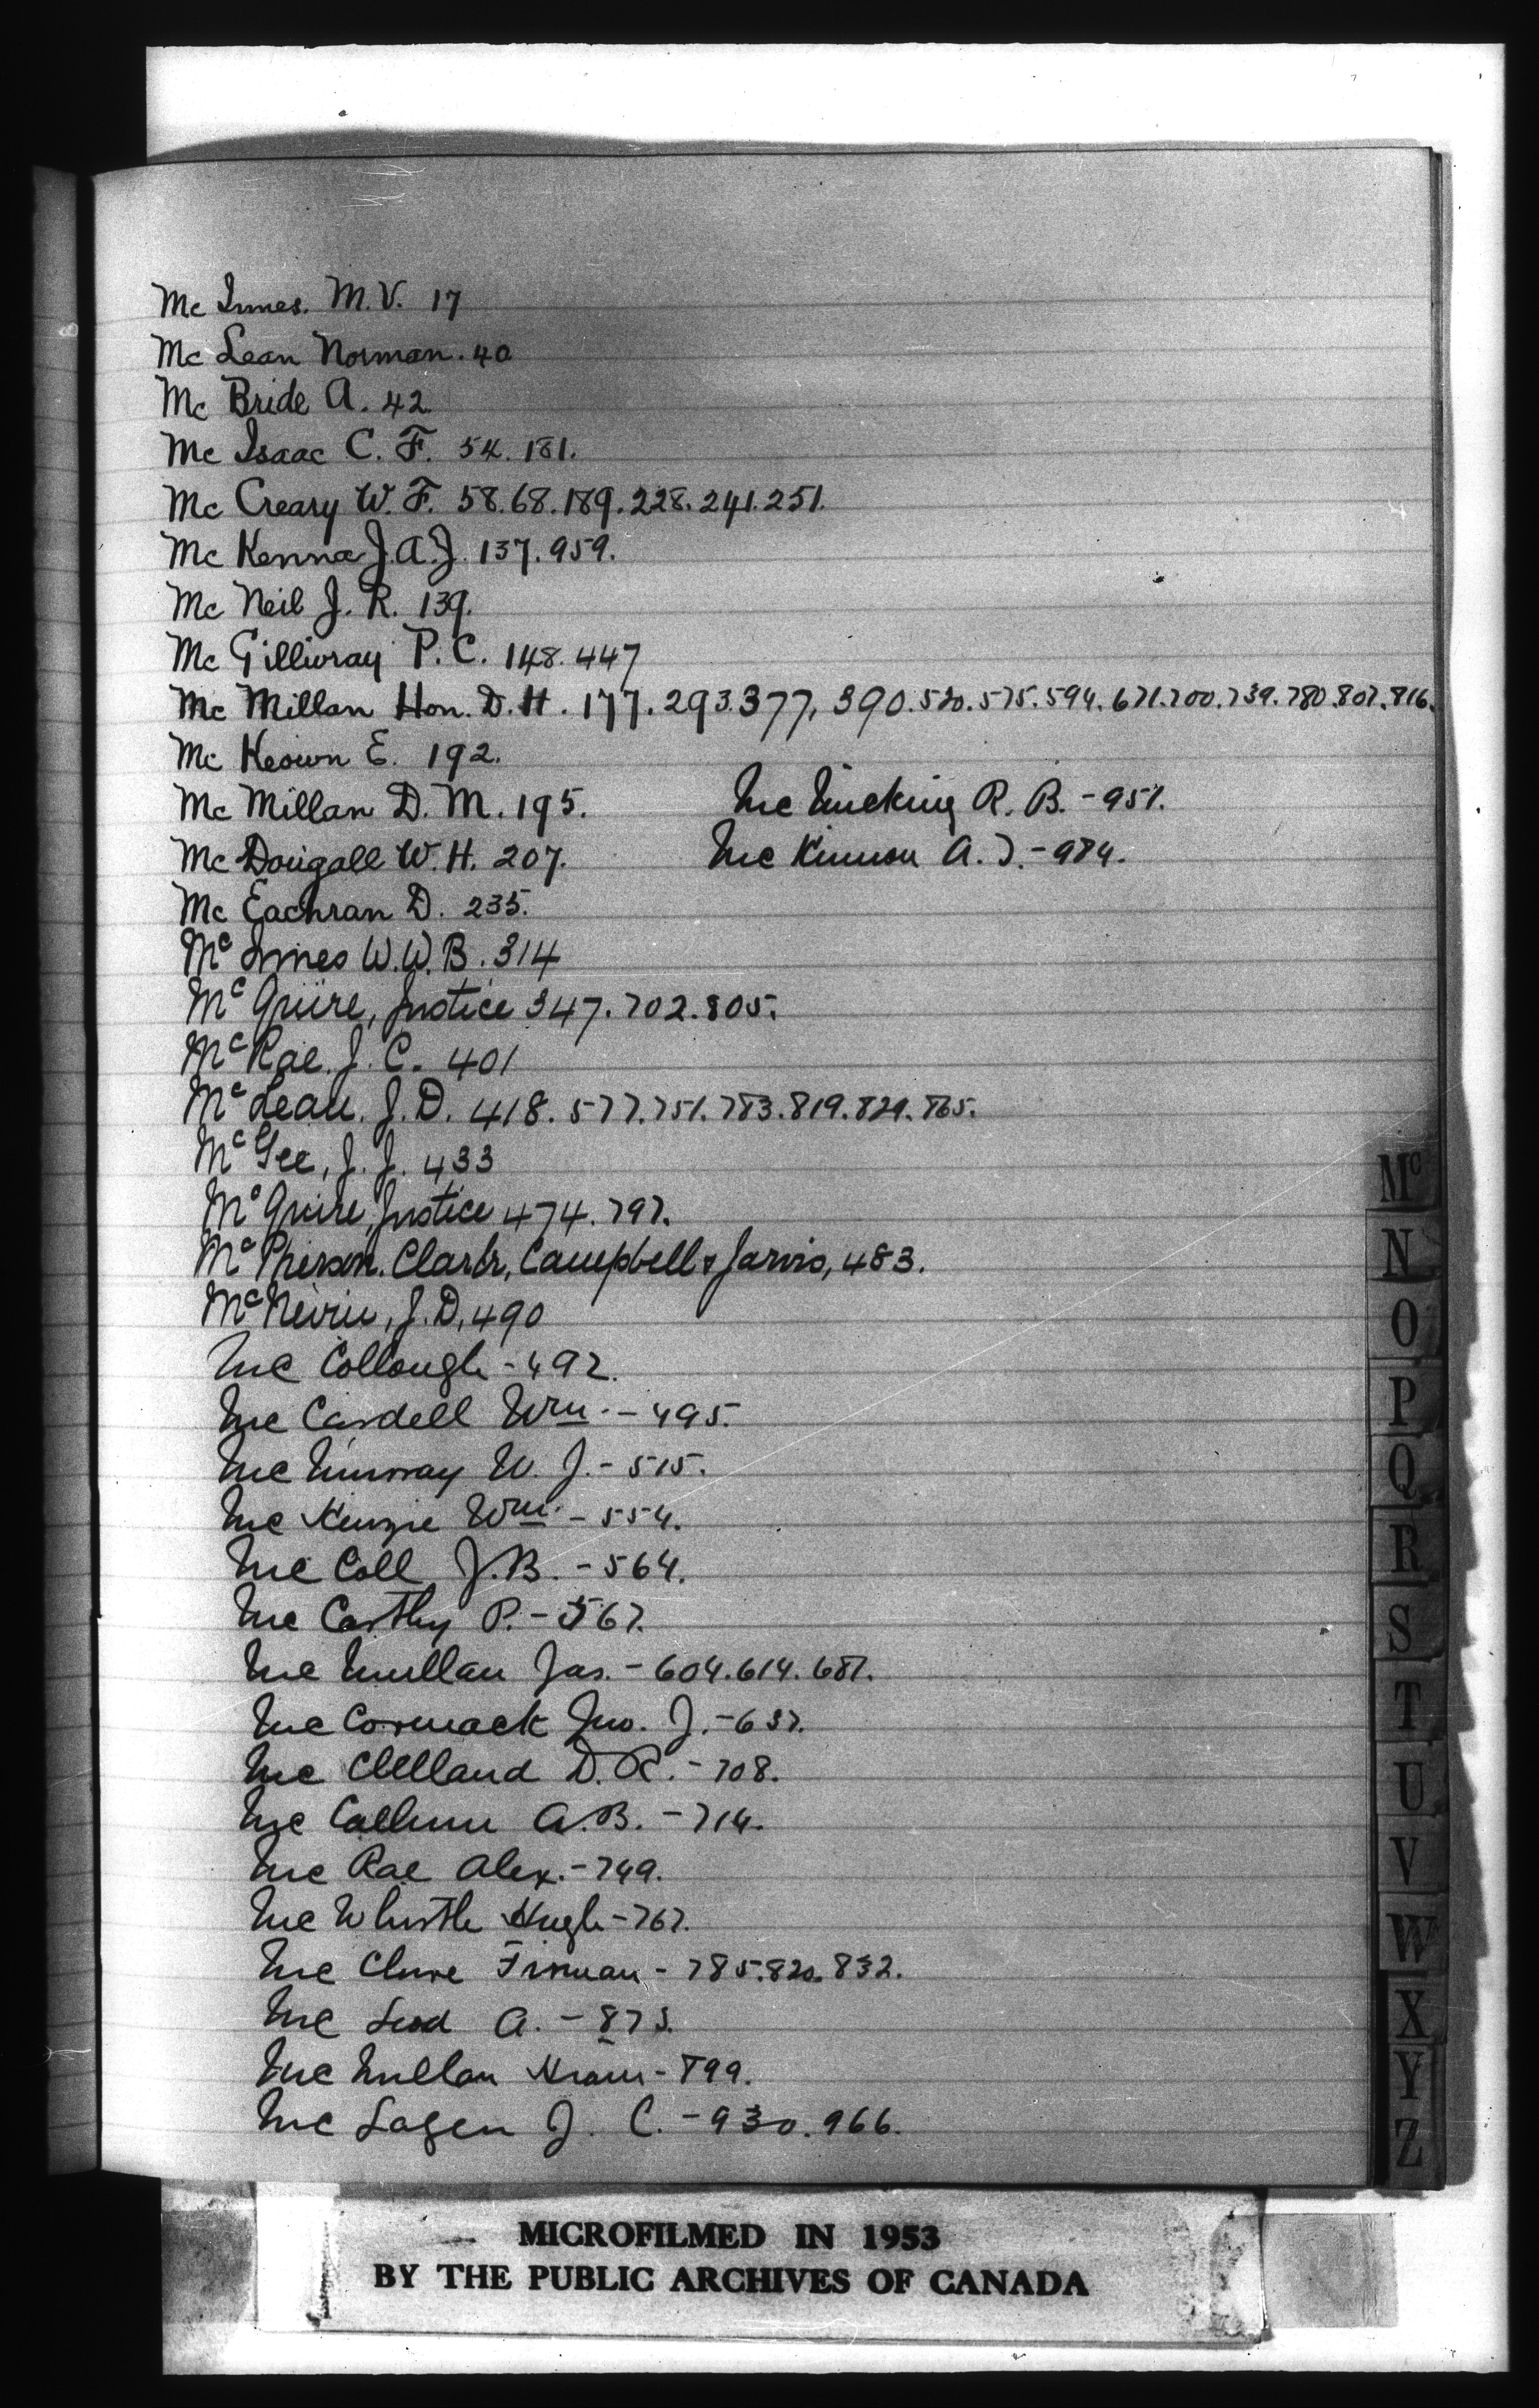 Mc Innes. M.V. 17
Mc Lean Norman. 40
Mc Bride A. 42
Mc Isaac C. F. 54. 181.
Mc Creary W. F. 58. 68. 189. 228. 241. 251.
Mc Kenna J. A. J. 137. 959.
Mc Neil J. R. 139.
Mc Gillivray P. C. 148. 447
Mc Millan Hon. D. H. 177. 293. 377, 390. 520. 575. 594. 671. 700. 739. 780. 807. 816.
Mc Keown E. 192.
Mc Millan D. M. 195.
Mc Micking R. B. - 951.
Mc Dougall W. H. 207.
Mc Kinnon A. J. - 984.
Mc Eachran D. 235.
Mc Innes W. W. B. 314
Mc Guire, Justice 347. 702. 805.
Mc Rae. J. C. 401
Mc Lean. J. D. 418. 577. 751. 783. 819. 829. 865.
Mc Gee, J. J. 433
Mc Guire, Justice 474. 797.
Mc Pherson. Clark, Campbell & Jarvis, 483.
Mc Nevin, J. D, 490
Mc Collough - 492.
Mc Cardell Wm. - 495.
Mc Murray W. J. - 515.
Mc Kenzie Wm. - 554.
Mc Coll J. B. - 564.
Mc Carthy P. - 567.
Mc Mullan Jas. - 604. 614. 687.
Mc Cormack Jno. J. - 637.
Mc Clelland D. R. - 708.
Mc Callum A. B. - 714.
Mc Rae Alex. - 749.
Mc Whistle Hugh - 767.
Mc Clure Firman - 785. 820. 832.
Mc Leod A. - 873.
Mc Millan Hiram - 899.
Mc Lagen J. C. - 930. 966.
Mc
N
O
P
Q
R
S
T
U
V
W
X
Y
Z
MICROFILMED IN 1953
BY THE PUBLIC ARCHIVES OF CANADA